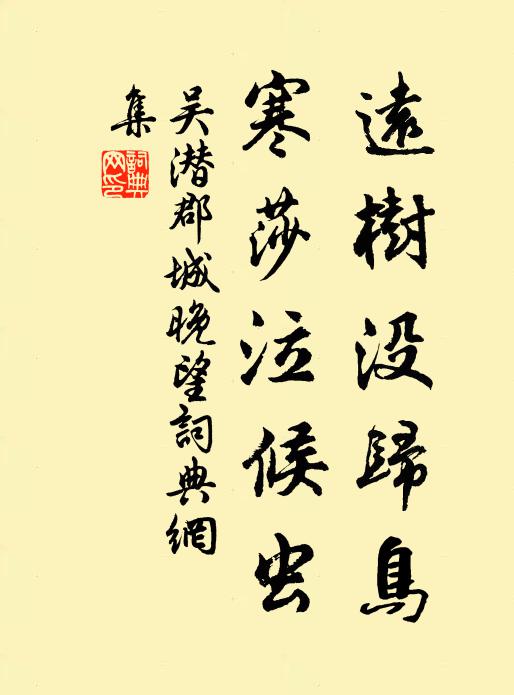 遠樹没歸鳥
寒莎泣候虫
吴潜郡城晚望詞典網
集
詞典网印